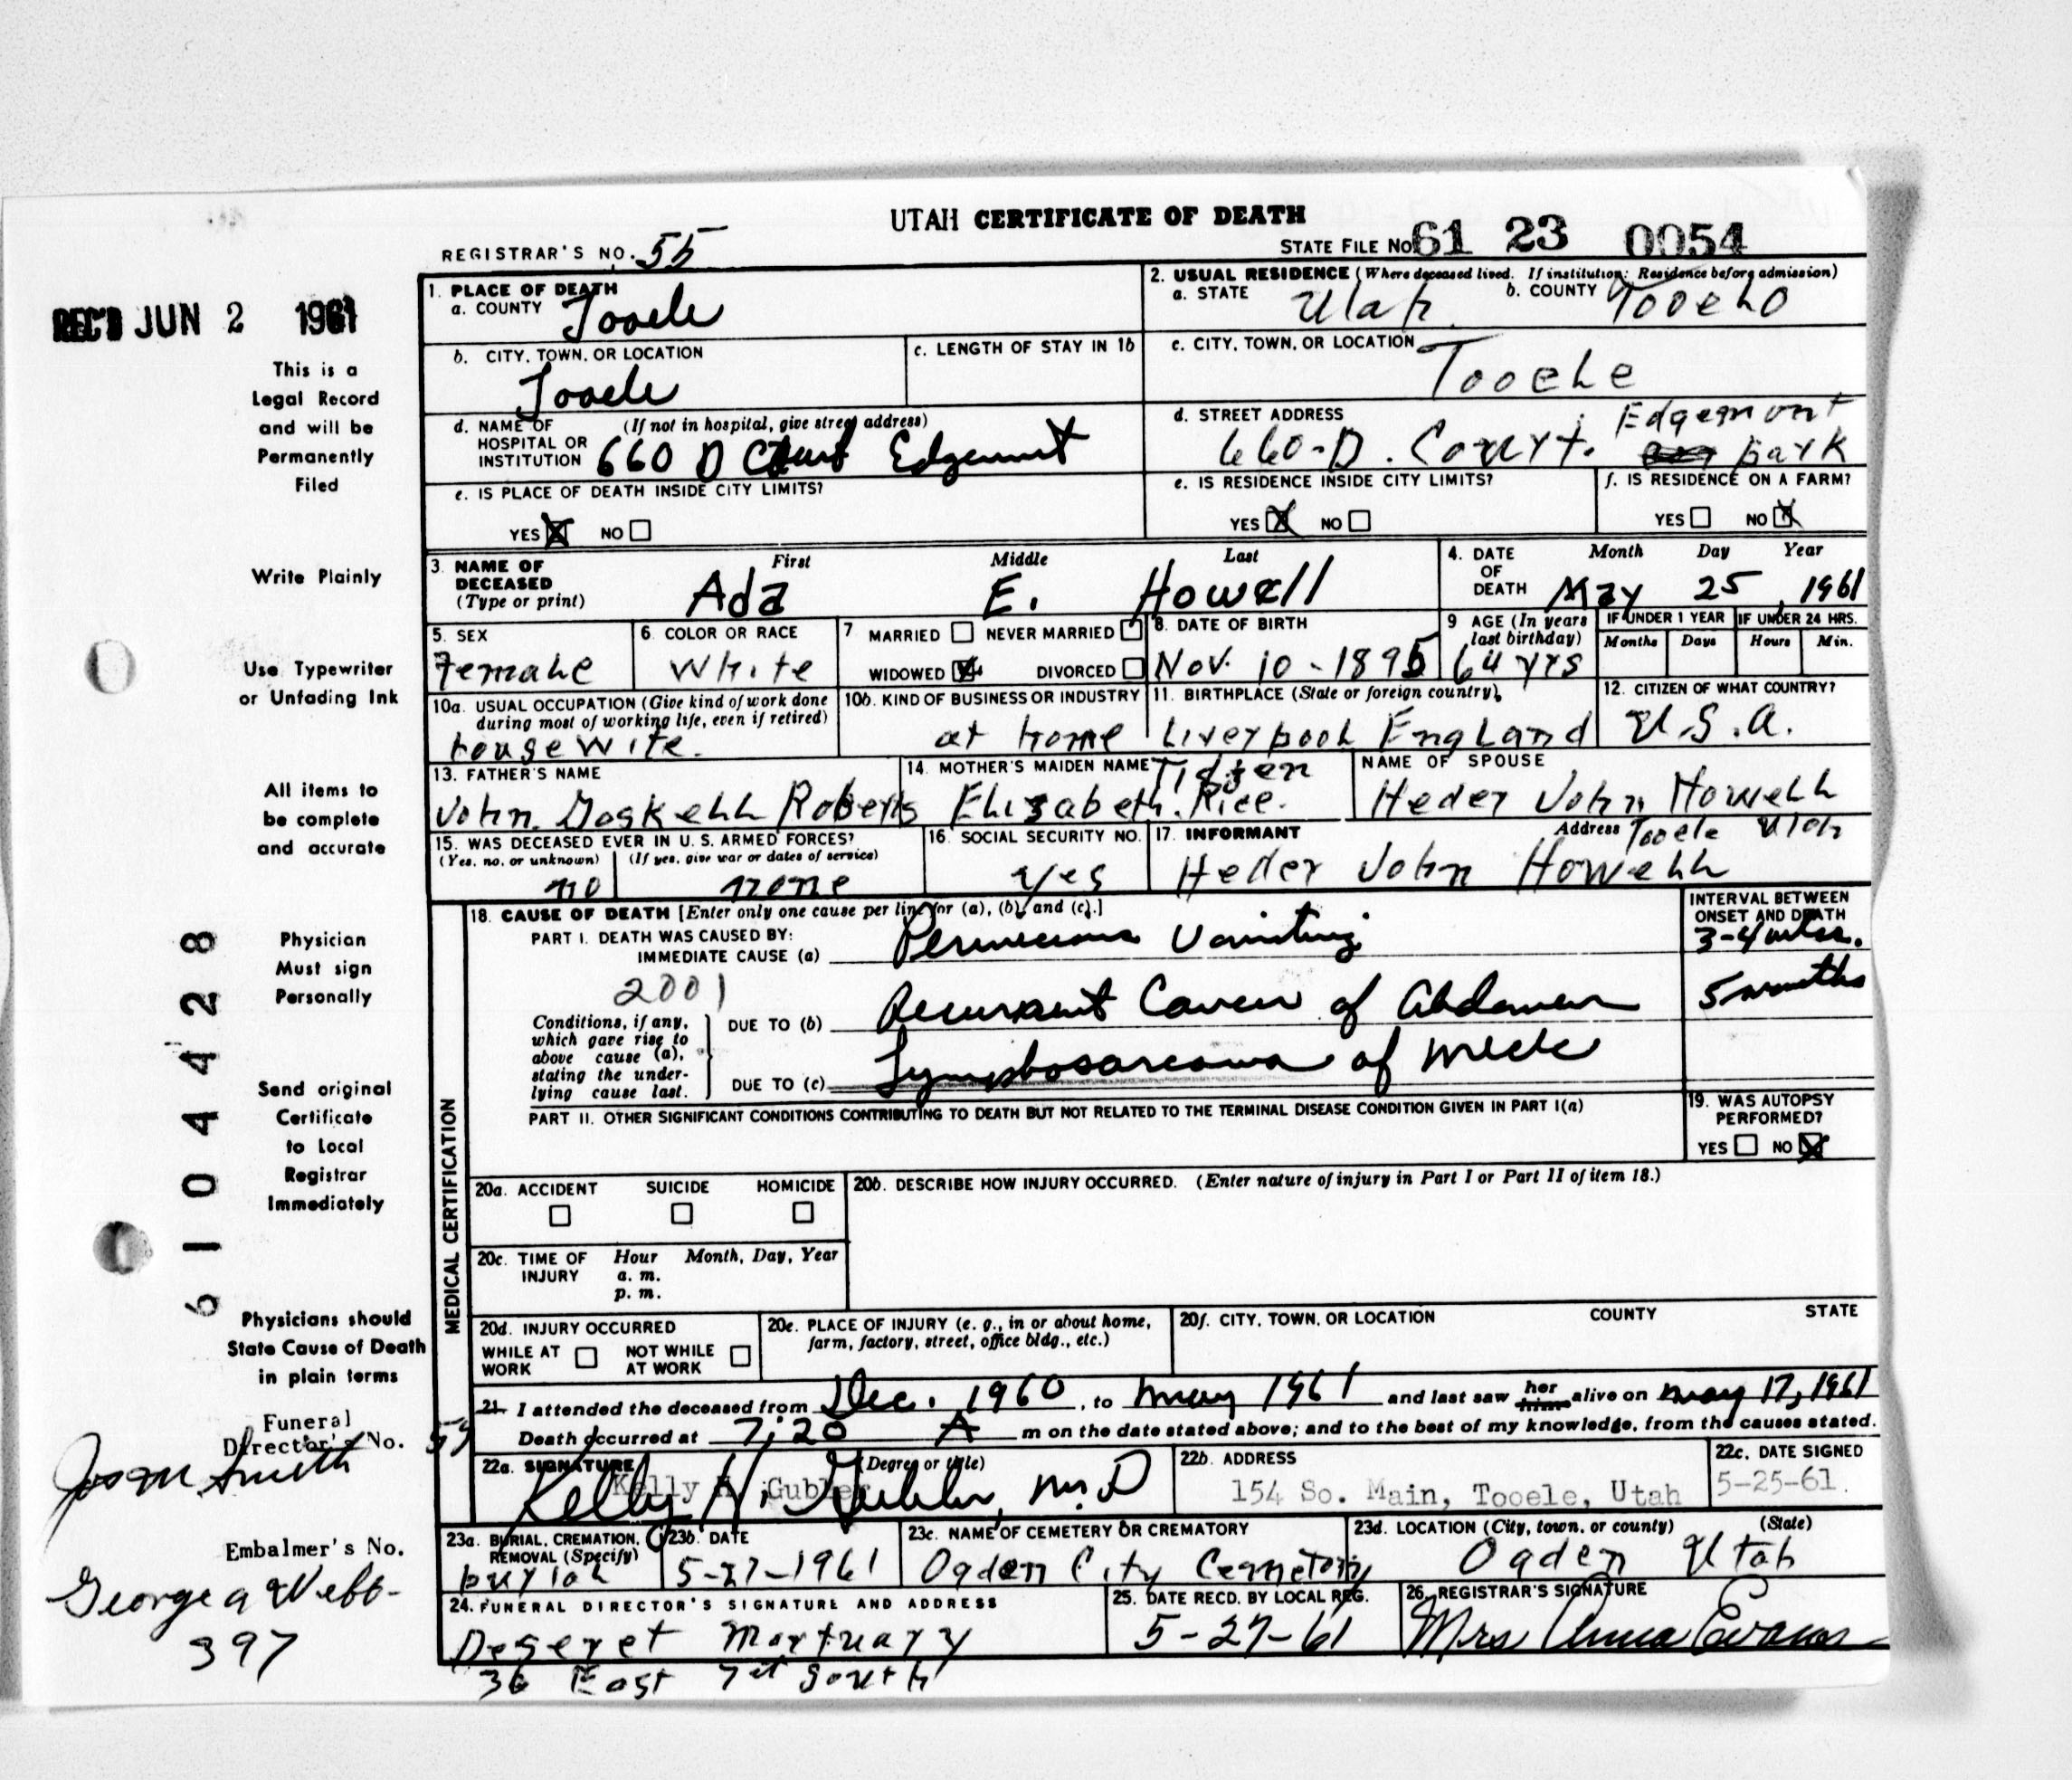 UTAH CERTIFICATE OF DEATH
REGISTRAR'S NO. 55
STATE FILE NO. 61 23 0054
REC'D JUN 2 1961
1. PLACE OF DEATH
a. COUNTY Tooele
2. USUAL RESIDENCE (Where deceased lived. If institution: Residence before admission)
a. STATE Utah b. COUNTY Tooele
b. CITY, TOWN, OR LOCATION Tooele
c. LENGTH OF STAY IN 1b
c. CITY, TOWN, OR LOCATION Tooele
d. NAME OF (If not in hospital, give street address)
HOSPITAL OR
INSTITUTION 660 D Court Edgemont
d. STREET ADDRESS Edgemont
660-D. Court. park
e. IS PLACE OF DEATH INSIDE CITY LIMITS?
YES X NO
e. IS RESIDENCE INSIDE CITY LIMITS?
YES X NO
f. IS RESIDENCE ON A FARM?
YES NO X
3. NAME OF DECEASED (Type or print)
First Middle Last
Ada E. Howell
4. DATE OF DEATH Month Day Year
May 25, 1961
5. SEX
Female
6. COLOR OR RACE
White
7 MARRIED NEVER MARRIED
WIDOWED X DIVORCED
8. DATE OF BIRTH
Nov. 10-1895
9 AGE (In years last birthday)
64 yrs
IF UNDER 1 YEAR IF UNDER 24 HRS.
Months Days Hours Min.
10a. USUAL OCCUPATION (Give kind of work done
during most of working life, even if retired)
housewife.
10b. KIND OF BUSINESS OR INDUSTRY
at home
11. BIRTHPLACE (State or foreign country)
Liverpool England
12. CITIZEN OF WHAT COUNTRY?
U.S.A.
13. FATHER'S NAME
John Goskell Roberts
14. MOTHER'S MAIDEN NAME
Elizabeth Rice.
NAME OF SPOUSE
Heder John Howell
15. WAS DECEASED EVER IN U. S. ARMED FORCES?
(Yes, no, or unknown) (If yes, give war or dates of service)
no none
16. SOCIAL SECURITY NO.
yes
17. INFORMANT Address Tooele Utah
Heder John Howell
MEDICAL CERTIFICATION
18. CAUSE OF DEATH [Enter only one cause per line for (a), (b), and (c).]
INTERVAL BETWEEN
ONSET AND DEATH
PART I. DEATH WAS CAUSED BY:
IMMEDIATE CAUSE (a) Pernicious Vomiting
3-4 wks.
2001
Conditions, if any,
which gave rise to
above cause (a),
stating the under-
lying cause last.
DUE TO (b) Recurrent Cancer of Abdomen
5 months
DUE TO (c) Lymphosarcoma of neck
PART II. OTHER SIGNIFICANT CONDITIONS CONTRIBUTING TO DEATH BUT NOT RELATED TO THE TERMINAL DISEASE CONDITION GIVEN IN PART I(a)
19. WAS AUTOPSY
PERFORMED?
YES NO X
20a. ACCIDENT SUICIDE HOMICIDE
20b. DESCRIBE HOW INJURY OCCURRED. (Enter nature of injury in Part I or Part II of item 18.)
20c. TIME OF INJURY Hour Month, Day, Year
a. m.
p. m.
20d. INJURY OCCURRED
WHILE AT WORK NOT WHILE AT WORK
20e. PLACE OF INJURY (e. g., in or about home,
farm, factory, street, office bldg., etc.)
20f. CITY, TOWN, OR LOCATION COUNTY STATE
21. I attended the deceased from Dec. 1960, to May 1961 and last saw her him alive on May 17, 1961
Death occurred at 7:20 A m on the date stated above; and to the best of my knowledge, from the causes stated.
22a. SIGNATURE (Degree or title)
Kelly H. Gubler
Kelly H. Gubler, M.D
22b. ADDRESS
154 So. Main, Tooele, Utah
22c. DATE SIGNED
5-25-61.
23a. BURIAL, CREMATION,
REMOVAL (Specify)
burial
23b. DATE
5-27-1961
23c. NAME OF CEMETERY OR CREMATORY
Ogden City Cemetery
23d. LOCATION (City, town, or county) (State)
Ogden Utah
24. FUNERAL DIRECTOR'S SIGNATURE AND ADDRESS
Deseret Mortuary
36 East 7st South
25. DATE RECD. BY LOCAL REG.
5-27-61
26. REGISTRAR'S SIGNATURE
Mrs Anna Evans
This is a
Legal Record
and will be
Permanently
Filed
Write Plainly
Use Typewriter
or Unfading Ink
All items to
be complete
and accurate
Physician
Must sign
Personally
Send original
Certificate
to Local
Registrar
Immediately
Physicians should
State Cause of Death
in plain terms
Funeral
Director's No.
Smith
Embalmer's No.
George A Webb-
397
6104428